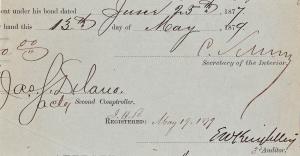 ent under his bond dated June 25th 1877
hand this 13th day of May 1879
00
C. Schurz
Secretary of the Interior.
Jas. Delano
Second Comptroller.
REGISTERED: May 19, 1879
Auditor.